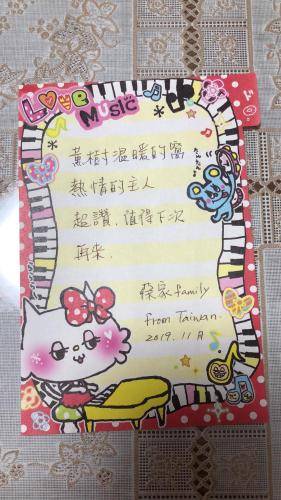 LOVE
MUSIC
黃樹溫暖的窩
熱情的主人
超讚,值得下次
再來.
蔡家family
from Taiwan.
2019.11月